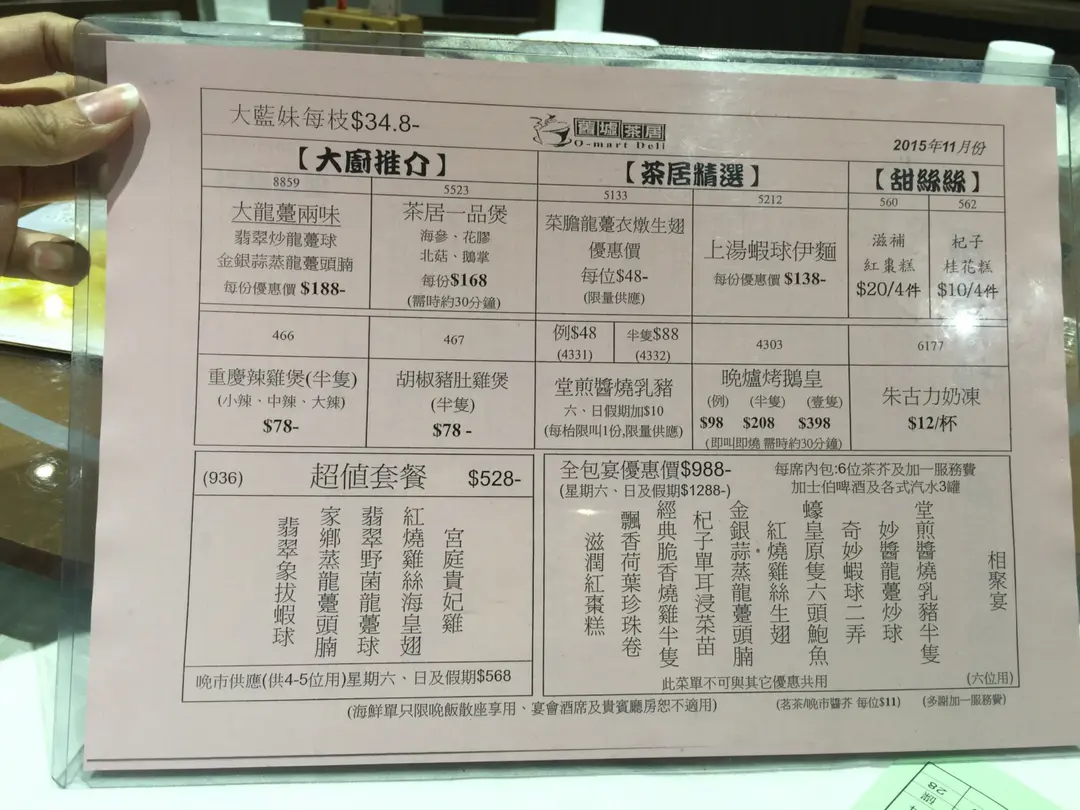 大藍妹每枝$34.8-
舊墟茶居
O-mart Deli
2015年11月份
【大廚推介】
【茶居精選】
【甜絲絲】
8859
大龍躉兩味
翡翠炒龍躉球
金銀蒜蒸龍躉頭腩
每份優惠價 $188-
5523
茶居一品煲
海參、花膠
北菇、鵝掌
每份$168
(需時約30分鐘)
5133
菜膽龍躉衣燉生翅
優惠價
每位$48-
(限量供應)
5212
上湯蝦球伊麵
每份優惠價 $138-
560
滋補
紅棗糕
$20/4件
562
杞子
桂花糕
$10/4件
466
重慶辣雞煲(半隻)
(小辣、中辣、大辣)
$78-
467
胡椒豬肚雞煲
(半隻)
$78 -
例$48
(4331)
半隻$88
(4332)
堂煎醬燒乳豬
六、日假期加$10
(每枱限叫1份,限量供應)
4303
晚爐烤鵝皇
(例) (半隻) (壹隻)
$98 $208 $398
(即叫即燒 需時約30分鐘)
6177
朱古力奶凍
$12/杯
(936) 超值套餐 $528-
宮庭貴妃雞
紅燒雞絲海皇翅
翡翠野菌龍躉球
家鄉蒸龍躉頭腩
翡翠象拔蝦球
晚市供應(供4-5位用)星期六、日及假期$568
全包宴優惠價$988-
(星期六、日及假期$1288-)
每席內包:6位茶芥及加一服務費
加士伯啤酒及各式汽水3罐
相聚宴
堂煎醬燒乳豬半隻
妙醬龍躉炒球
奇妙蝦球二弄
蠔皇原隻六頭鮑魚
紅燒雞絲生翅
金銀蒜蒸龍躉頭腩
杞子單耳浸菜苗
經典脆香燒雞半隻
飄香荷葉珍珠卷
滋潤紅棗糕
此菜單不可與其它優惠共用
(六位用)
(海鮮單只限晚飯散座享用、宴會酒席及貴賓廳房恕不適用)
(茗茶/晚市醬芥 每位$11)
(多謝加一服務費)
28